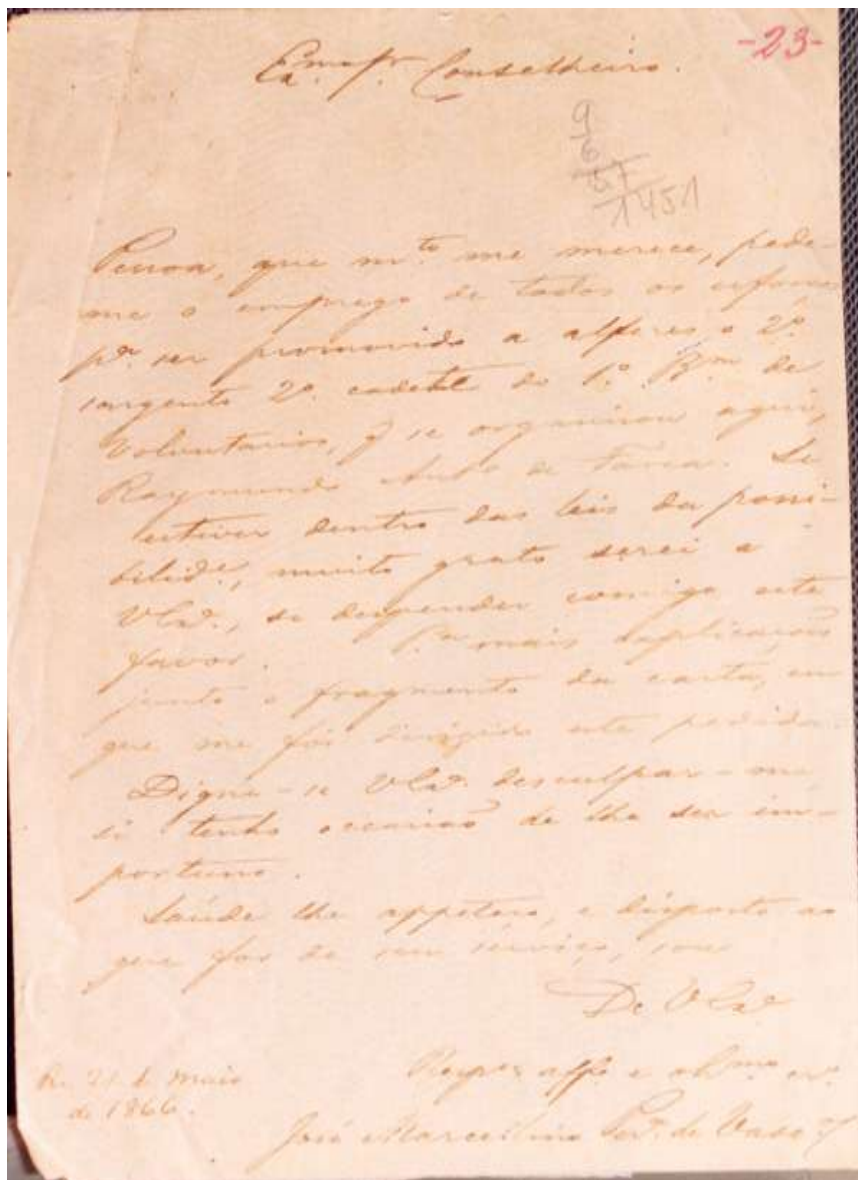 -23-
Exmo Sr. Conselheiro.
9
6
57
1451
Pessoa, que m.to me merece, pede-
me o emprego de todos os esforços
pa. ser promovido a alferes o 2º
sargento 2º cadete do 1º B.m de
Voluntarios, q se organisou aqui,
Raymundo de Faria. Se
estiver dentro das leis da possi-
bilide., muito grato serei a
V Exa., se dispender comigo este
favor. P.a mais explicação
junto o fragmento da carta, em
que me foi dirigido este pedido.
Digne-se V Exa. desculpar-me,
si tenho occasião de lhe ser im-
portuno.
Saúde lhe appeteço, e disposto ao
que for de seu serviço, sou
De V Exa
Re. 21 de Maio
de 1866.
aff.o e obr.mo cr.o
José Marcellino Per.a de Vasc.os